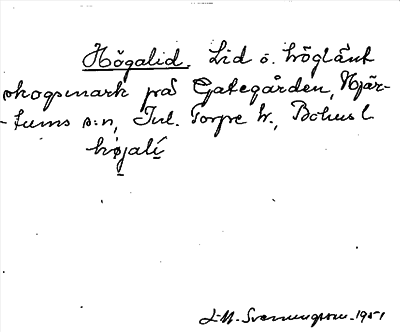 Högalid. Lid o. höglänt
skogsmark på Gategården, Hjär-
-tums s:n, Inl. Torpe h., Bohus l
højalí
L-M. Svenungsson. 1951